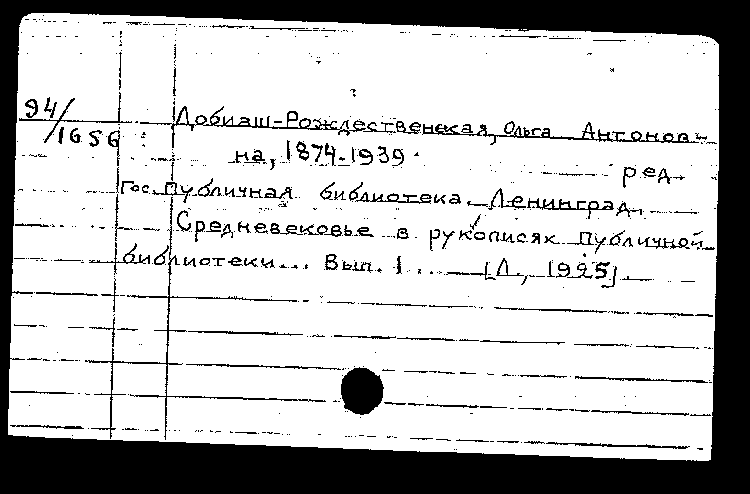 94/1656
Добиаш-Рождественская, Ольга Антонов-
на, 1874-1939.
ред.
Гос. Публичная библиотека. Ленинград.
Средневековье в рукописях Публичной
библиотеки... Вып. 1. — [Л., 1925].